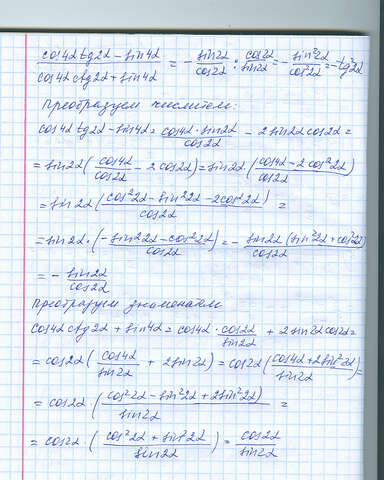 (cos4α tg2α − sin4α)/(cos4α ctg2α + sin4α) = −sin2α/cos2α : cos2α/sin2α = −sin²2α/cos²2α = −tg²2α
Преобразуем числитель:
cos4α tg2α − sin4α = cos4α·sin2α/cos2α − 2sin2α cos2α =
= sin2α(cos4α/cos2α − 2cos2α) = sin2α((cos4α − 2cos²2α)/cos2α)
= sin2α((cos²2α − sin²2α − 2cos²2α)/cos2α) =
= sin2α·((−sin²2α − cos²2α)/cos2α) = −sin2α(sin²2α + cos²2α)/cos2α
= −sin2α/cos2α
Преобразуем знаменатель
cos4α ctg2α + sin4α = cos4α·cos2α/sin2α + 2sin2α cos2α =
= cos2α(cos4α/sin2α + 2sin2α) = cos2α((cos4α + 2sin²2α)/sin2α) =
= cos2α((cos²2α − sin²2α + 2sin²2α)/sin2α) =
= cos2α·((cos²2α + sin²2α)/sin2α) = cos2α/sin2α